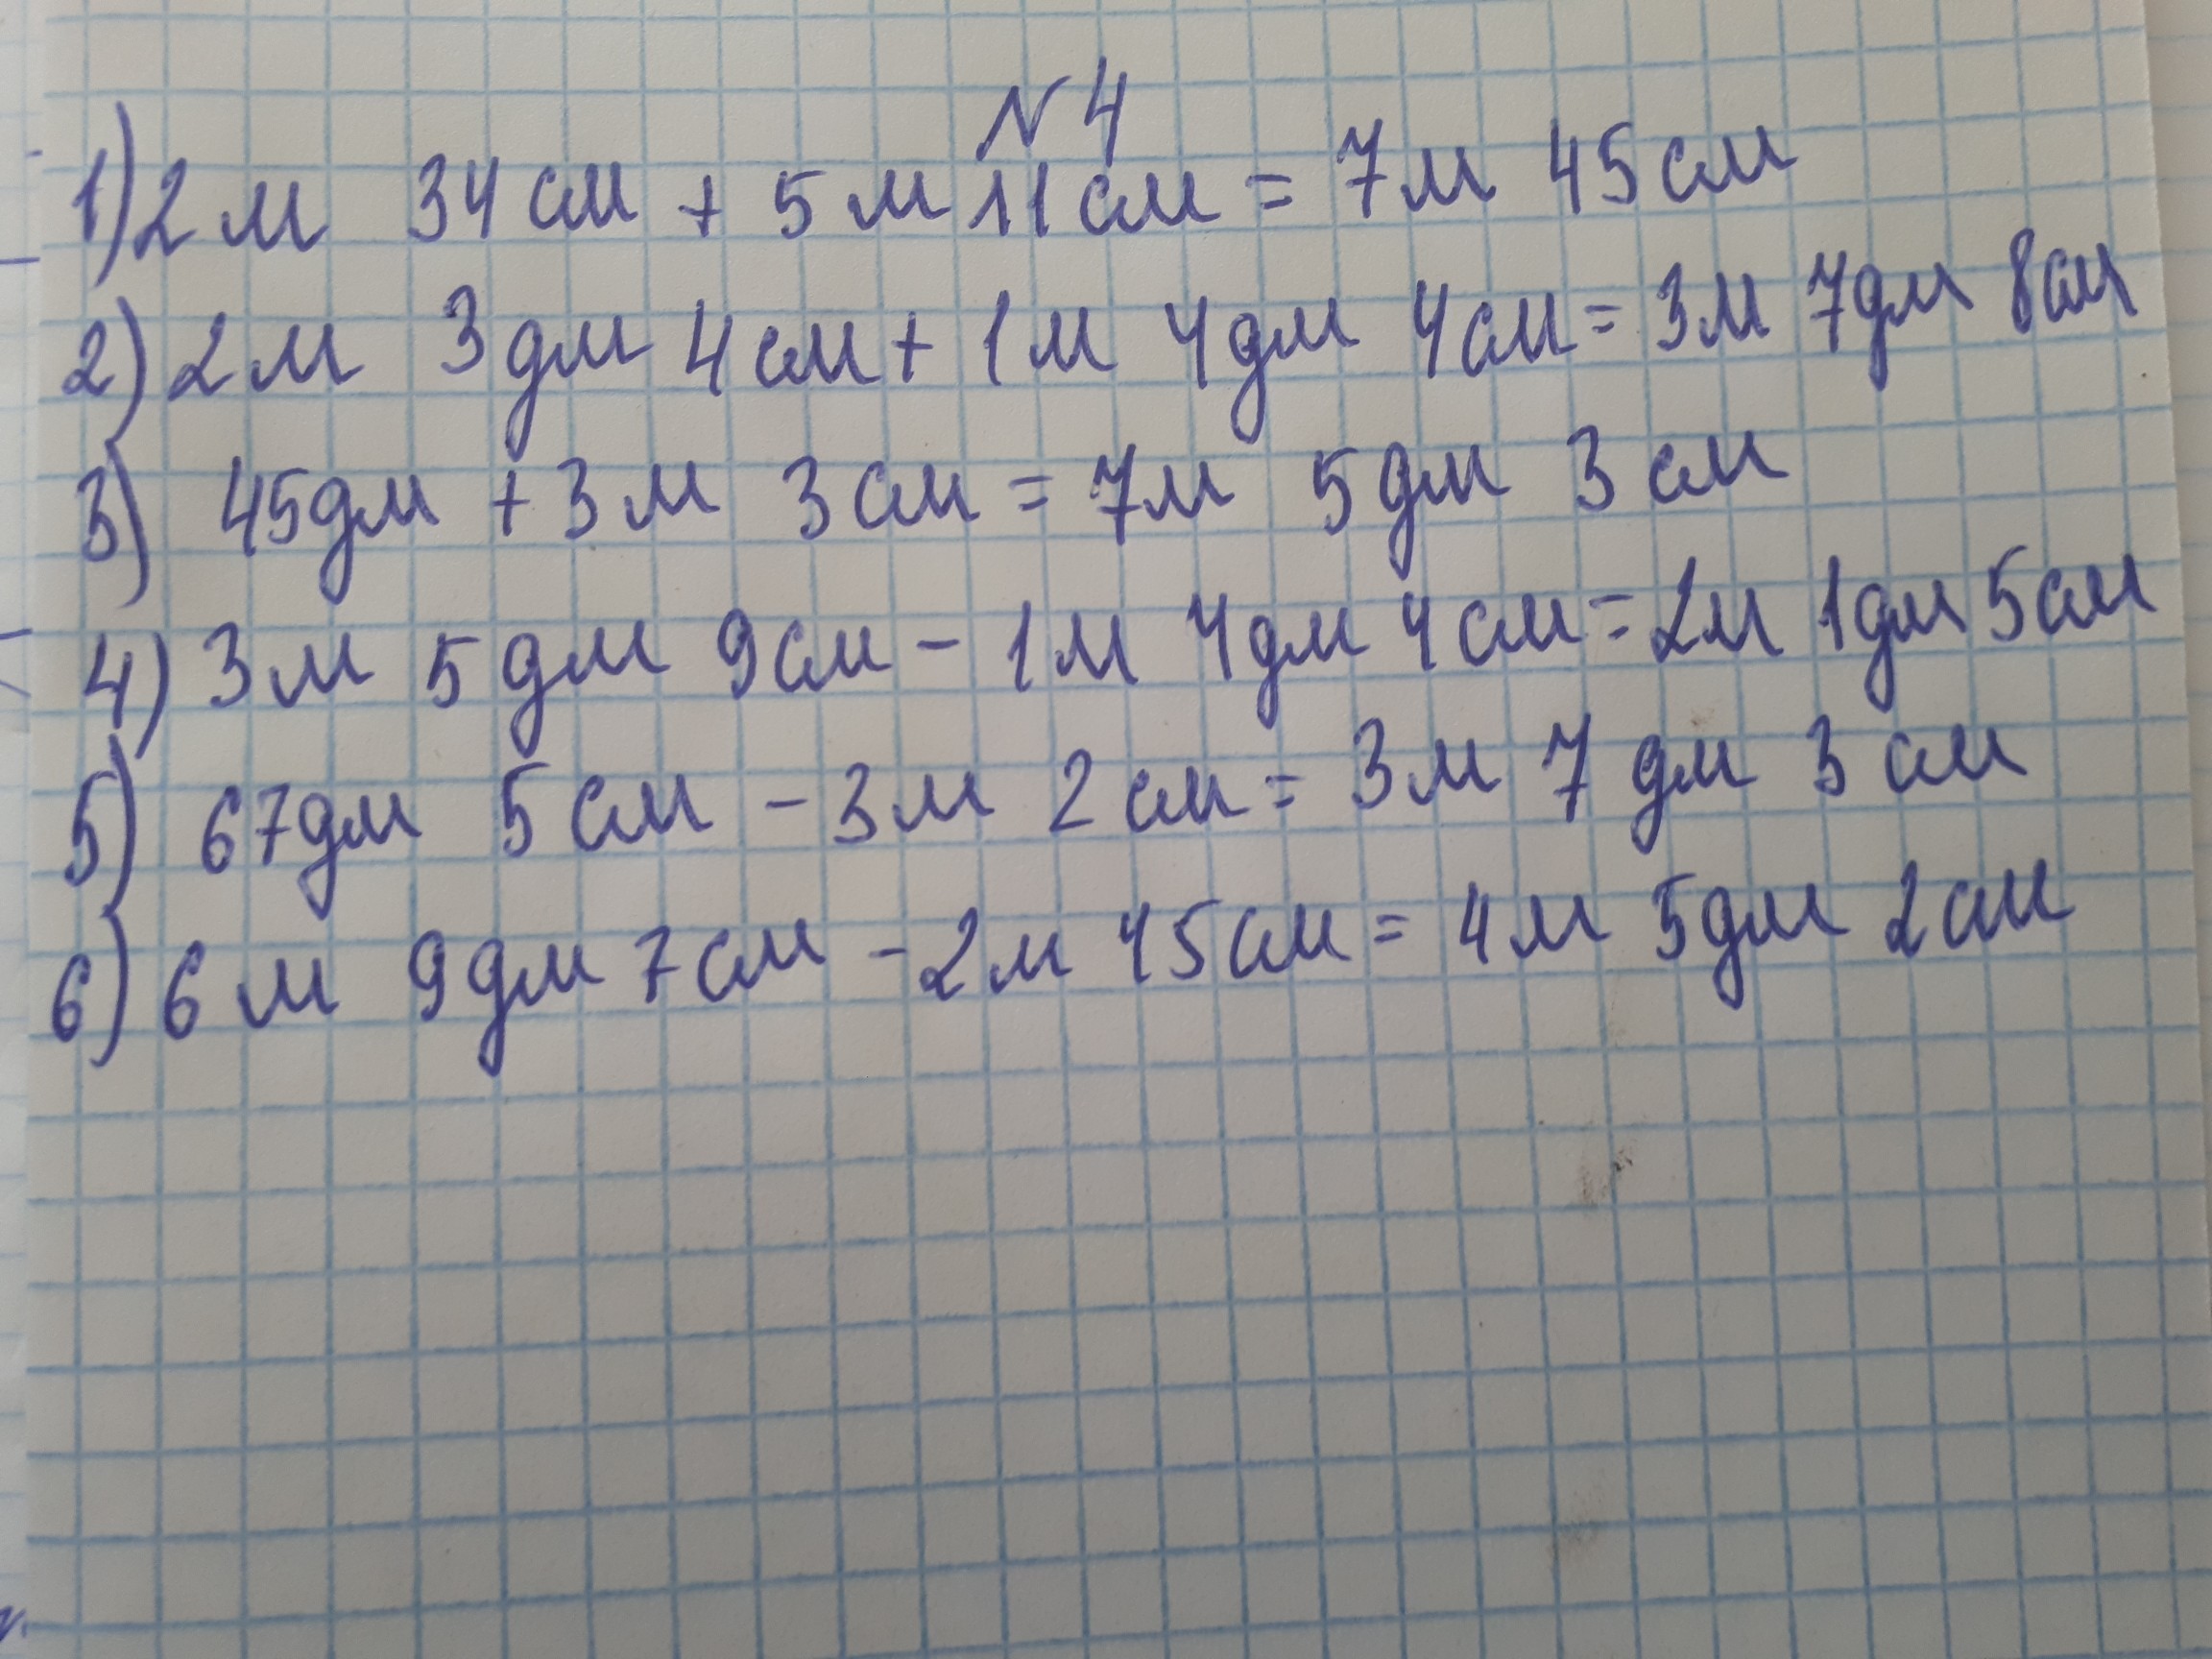 N 4
1) 2 м 34 см + 5 м 11 см = 7 м 45 см
2) 2 м 3 дм 4 см + 1 м 4 дм 4 см = 3 м 7 дм 8 см
3) 45 дм + 3 м 3 см = 7 м 5 дм 3 см
4) 3 м 5 дм 9 см - 1 м 4 дм 4 см = 2 м 1 дм 5 см
5) 67 дм 5 см - 3 м 2 см = 3 м 7 дм 3 см
6) 6 м 9 дм 7 см - 2 м 45 см = 4 м 5 дм 2 см